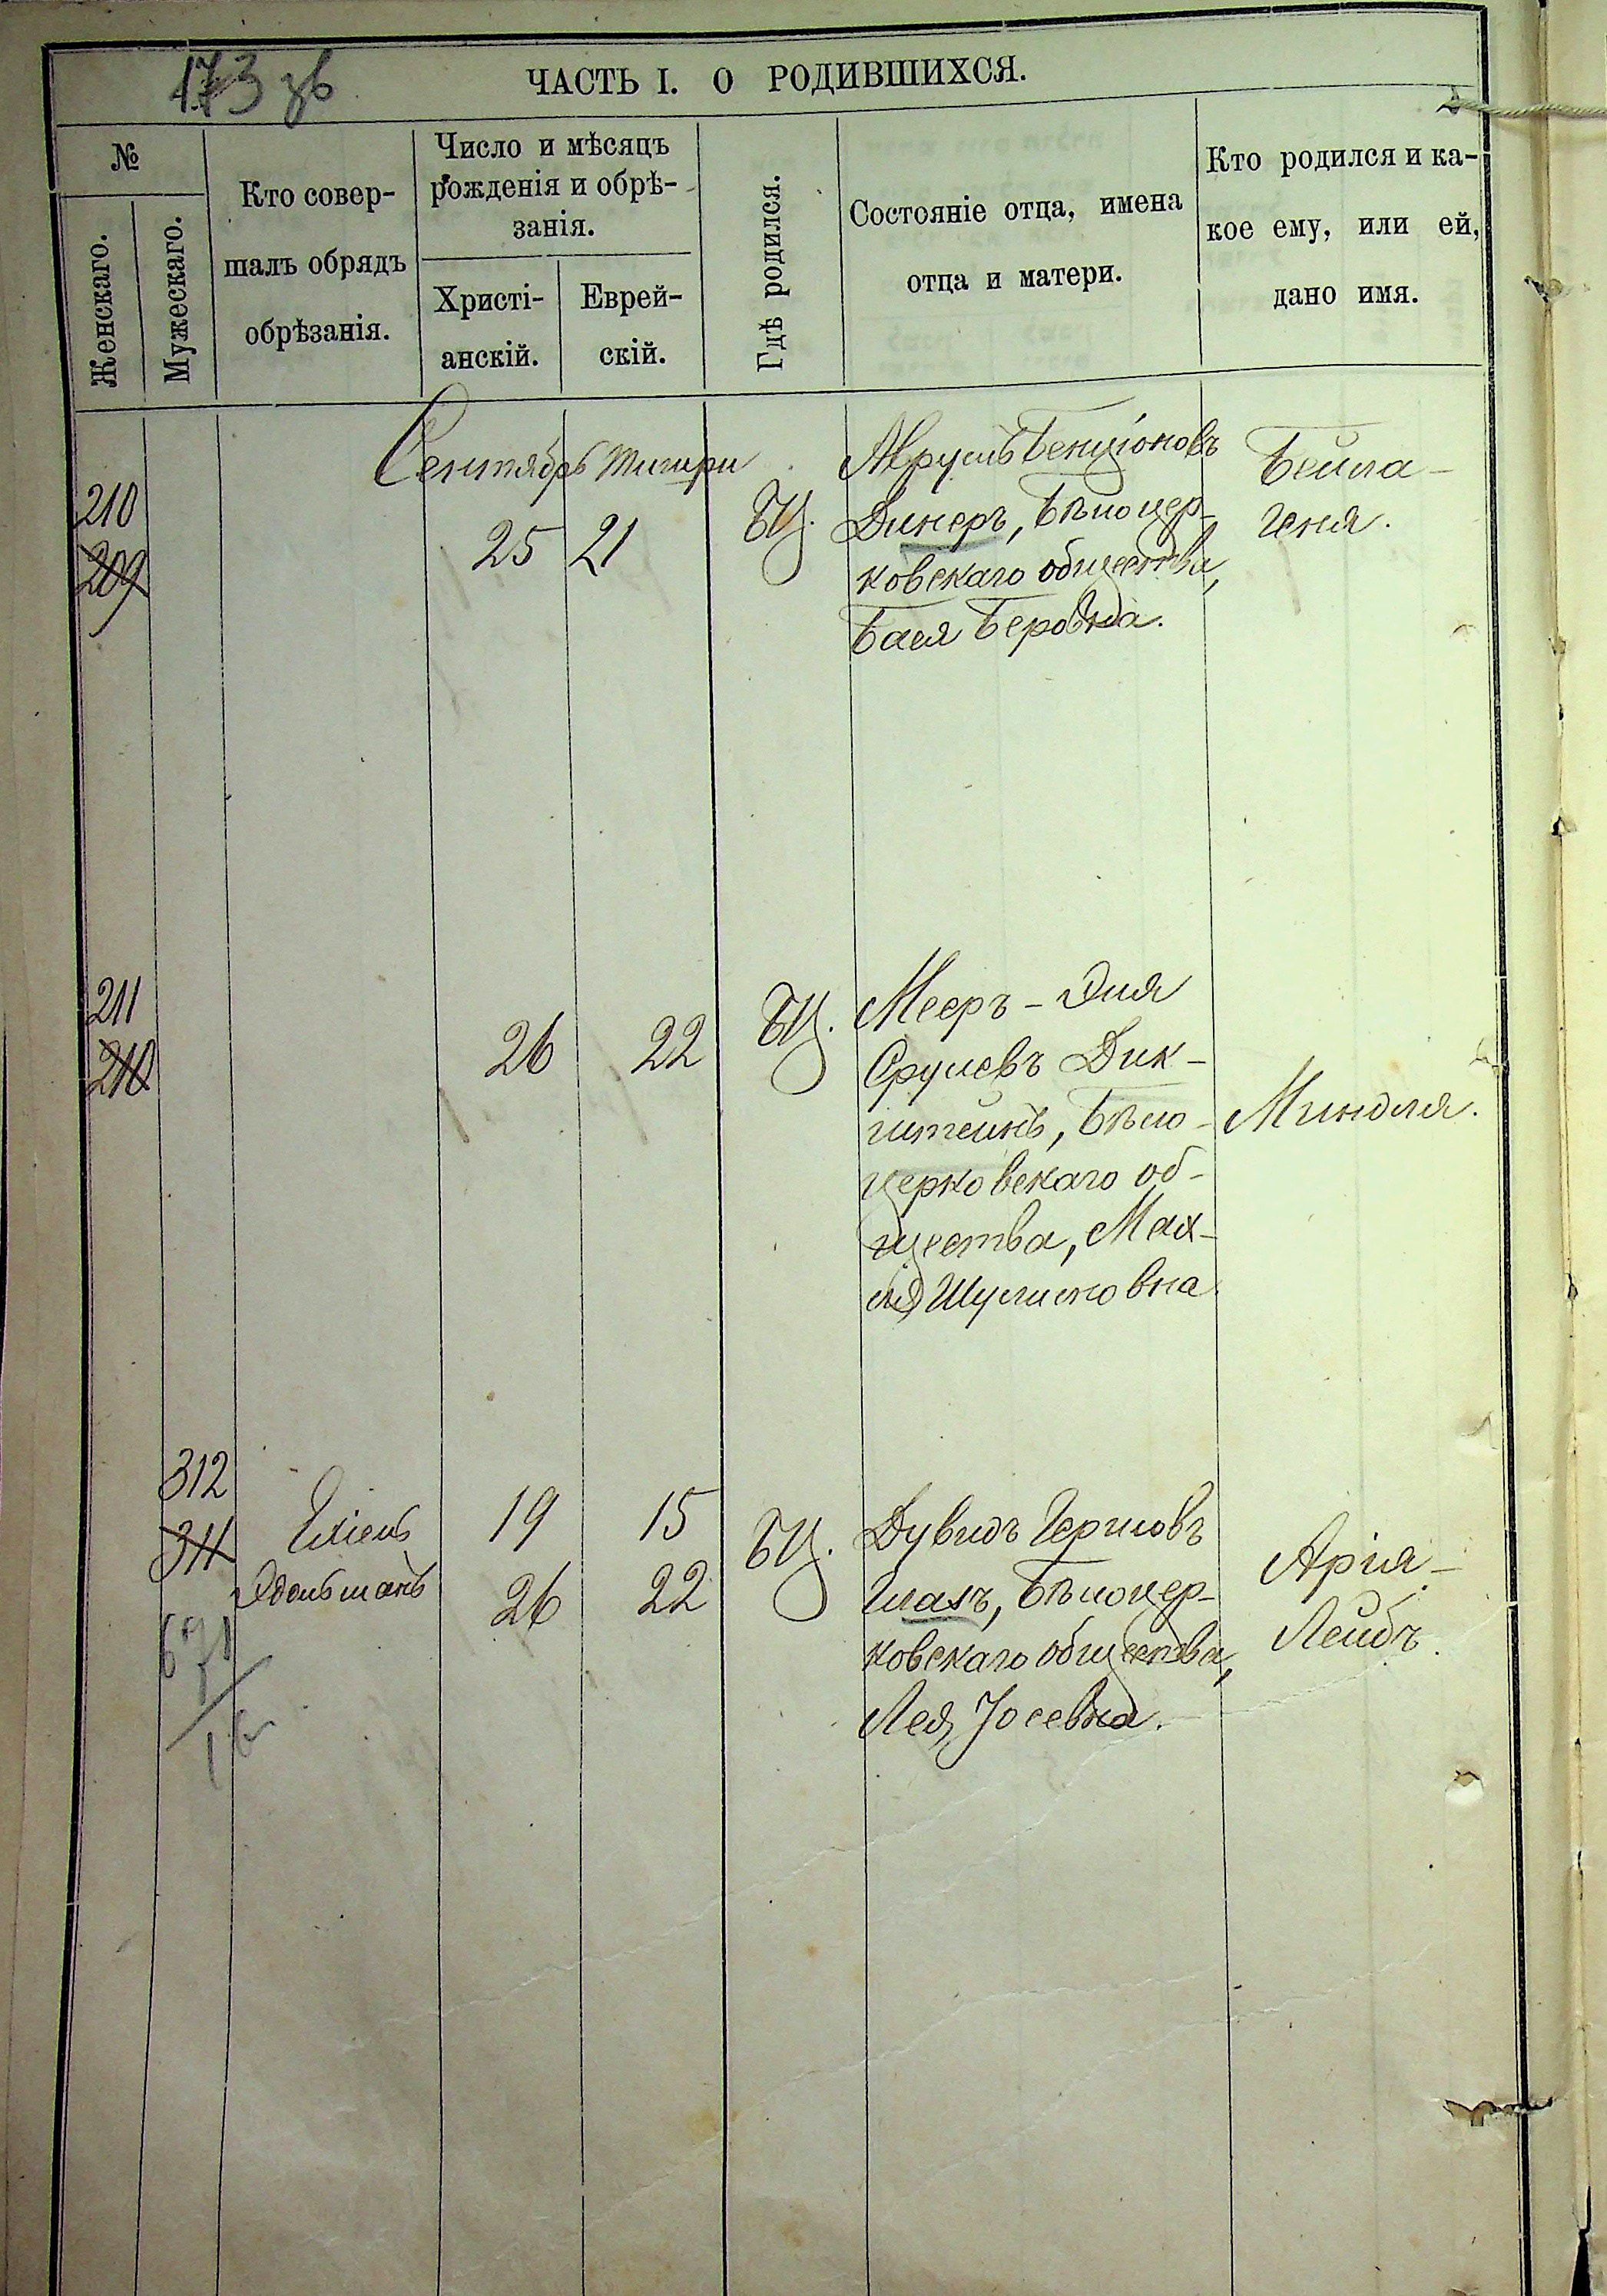 173 зв
ЧАСТЬ I. О РОДИВШИХСЯ.
№
Женскаго.
Мужескаго.
Кто совер-
шалъ обрядъ
обрѣзанія.
Число и мѣсяцъ
рожденія и обрѣ-
занія.
Христі-
анскій.
Еврей-
скій.
Гдѣ родился.
Состояніе отца, имена
отца и матери.
Кто родился и ка-
кое ему, или ей,
дано имя.
Сентябрь Тишри
210
209
25 21
БЦ.
Аврумъ Бенціоновъ
Динеръ, Бѣлоцер-
ковскаго общества,
Бася Беровна.
Бейла-
Геня.
211
210
26 22
БЦ.
Мееръ-Эля
Срулевъ Дик-
штейнъ, Бѣло-
церковскаго об-
щества, Мах-
ля Шулимовна
Миндля.
312
311
671
Эдельманъ
19 15
26 22
БЦ.
Дувидъ Гершовъ
Шлакъ, Бѣлоцер-
ковскаго общества,
Лея Іосевна.
Арія-
Лейбъ.